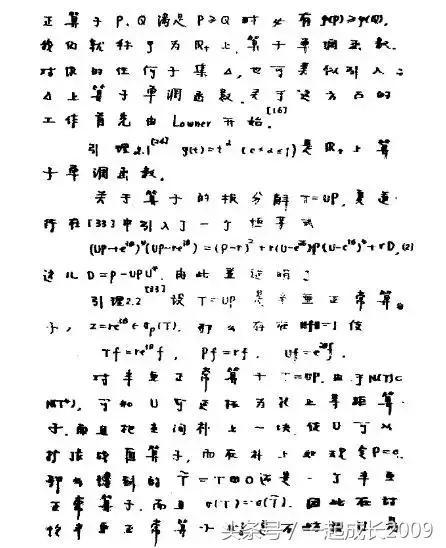 正算子 P、Q 满足 P≥Q 时必有 g(P)≥g(Q),
我们就称 g 为 R+ 上算子单调函数。
对 R+ 的任何子集 Δ,也可类似引入
Δ上算子单调函数。关于这方面的
工作首先由 Lowner 开始。[16]
引理2.1 g(t)=t^α 是 R+ 上算
子单调函数。
关于算子的极分解 T=UP, 夏道
行在[33]中引入了一个恒等式
(UP-re^{iθ})*(UP-re^{iθ})=(P-r)²+r(U-e^{iθ})*P(U-e^{iθ})+rD,
这儿 D=P-UPU*. 由此
引理2.2[33] 设 T=UP 是半亚正常算
子, z=re^{iθ}∈σp(T). 那么存在 ‖f‖=1 使
Tf=re^{iθ}f, Pf=rf, Uf=e^{iθ}f.
对半亚正常算子 T=UP, 由于 N(T)⊂
N(T*), 可知 U 可延拓为 上等距算
子. 而且把空间补上一块, 使 U 可以
扩张成酉算子, 而在补上 规定 P=0.
那么得到的 T̃=T⊕0 还是一个半亚
正常算子. 而且 σ(T)=σ(T̃). 因此在讨
论半亚正常算子
头条号/一起成长2009